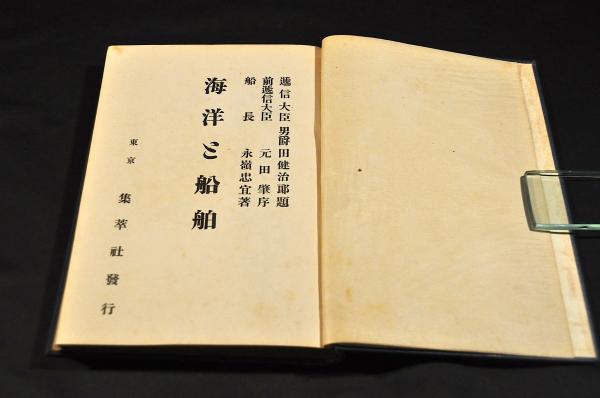 遞信大臣 男爵田健治郎題
前遞信大臣 元田肇序
船長 永嶺忠宜著
海洋と船舶
東京 集萃社發行